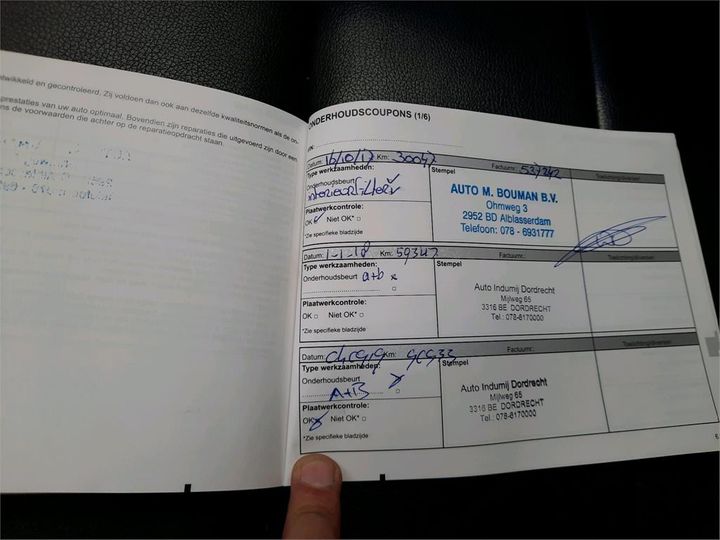 twikkeld en gecontroleerd. Zij voldoen dan ook aan dezelfde kwaliteitsnormen als de on-
prestaties van uw auto optimaal. Bovendien zijn reparaties die uitgevoerd zijn door een
ns de voorwaarden die achter op de reparatieopdracht staan.
ONDERHOUDSCOUPONS (1/6)
Datum: 16/10/17 Km: 30047 Factuurnr.: 537242 Toelichting/diversen
Type werkzaamheden: Stempel
Onderhoudsbeurt
interieurfilter
Plaatwerkcontrole:
OK Niet OK*
*Zie specifieke bladzijde
AUTO M. BOUMAN B.V.
Ohmweg 3
2952 BD Alblasserdam
Telefoon: 078 - 6931777
Datum: 1-1-18 Km: 59347 Factuurnr.: Toelichting/diversen
Type werkzaamheden: Stempel
Onderhoudsbeurt a+b x
Plaatwerkcontrole:
OK Niet OK*
*Zie specifieke bladzijde
Auto Indumij Dordrecht
Mijlweg 65
3316 BE DORDRECHT
Tel.: 078-6170000
Datum: Km: Factuurnr.: Toelichting/diversen
Type werkzaamheden: Stempel
Onderhoudsbeurt
A+B
Plaatwerkcontrole:
OK Niet OK*
*Zie specifieke bladzijde
Auto Indumij Dordrecht
Mijlweg 65
3316 BE DORDRECHT
Tel.: 078-6170000